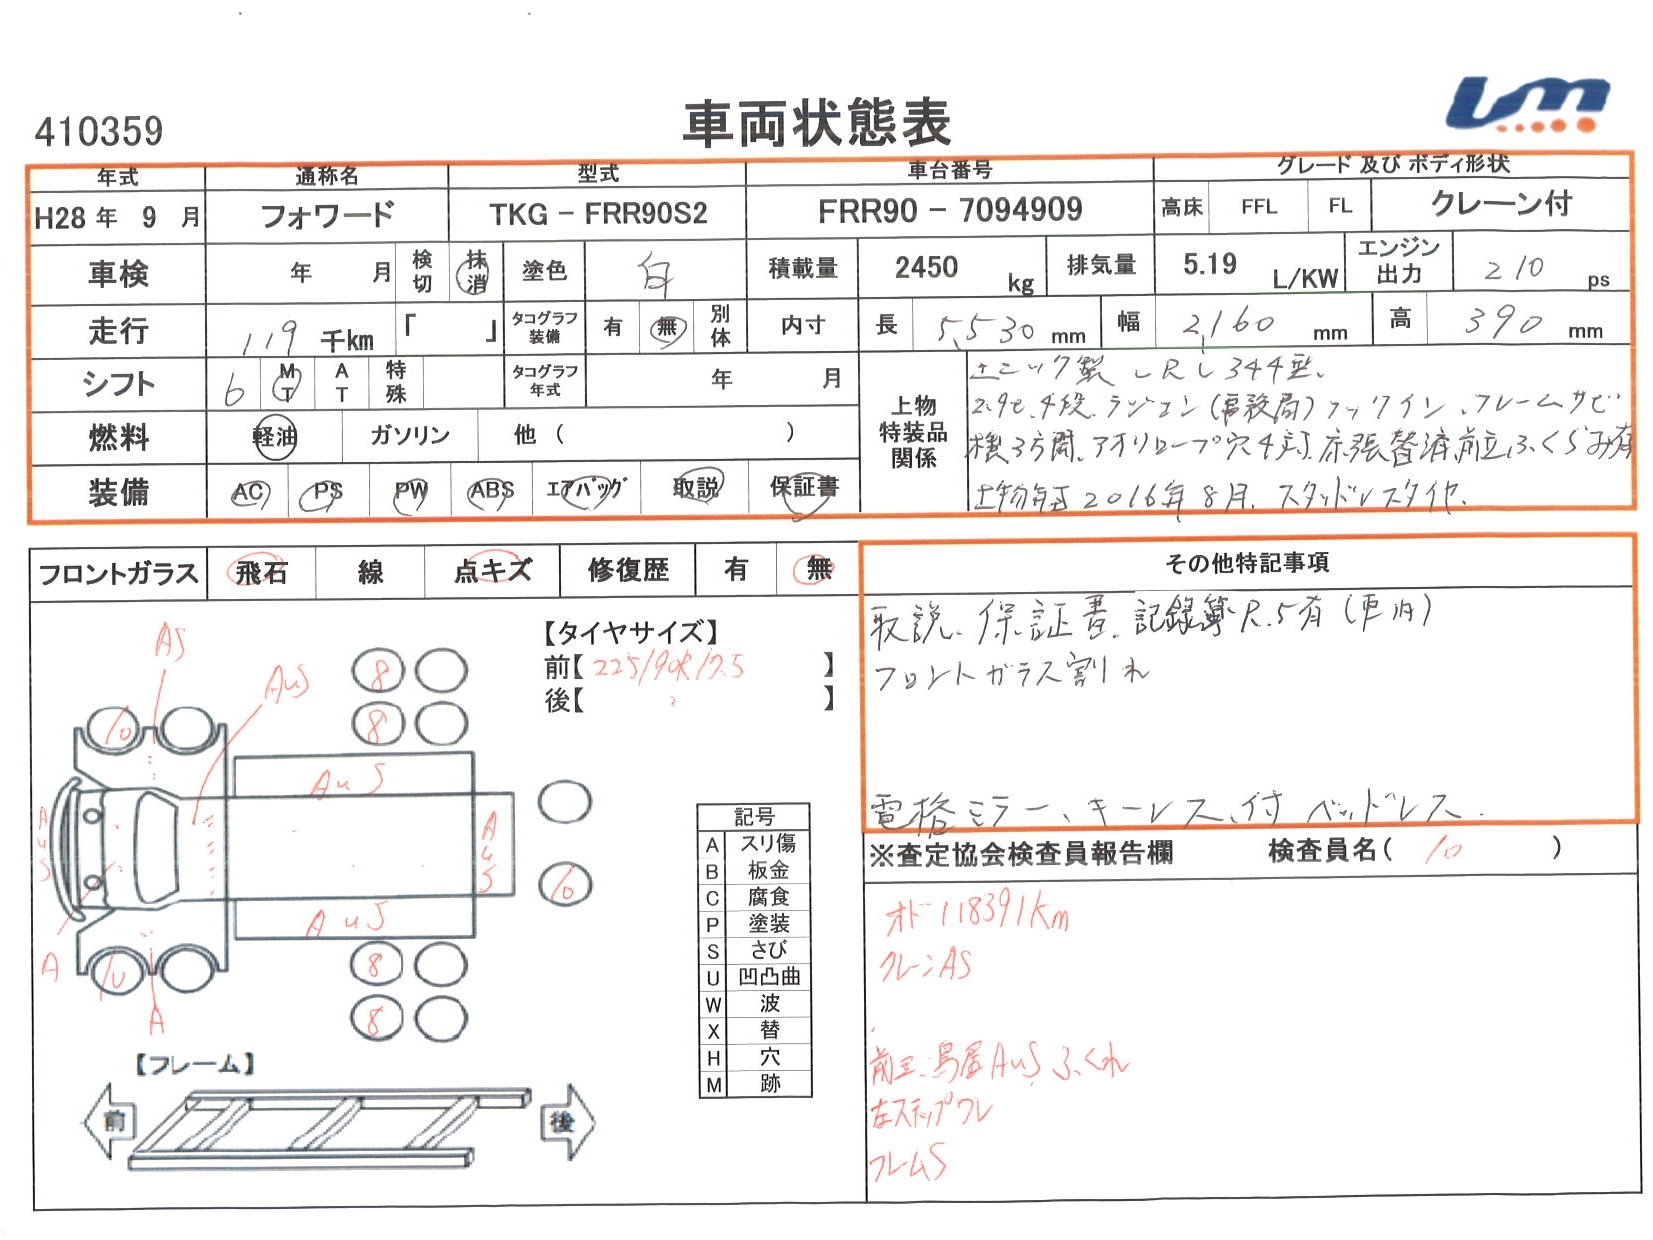 410359
車両状態表
年式 通称名 型式 車台番号 グレード 及び ボディ形状
H28 年 9 月 フォワード TKG - FRR90S2 FRR90 - 7094909 高床 FFL FL クレーン付
車検 年 月 検切 抹消 塗色 白 積載量 2450 kg 排気量 5.19 L/KW エンジン出力 210 ps
走行 119 千km 「 」 タコグラフ装備 有 無 別体 内寸 長 5,530 mm 幅 2,160 mm 高 390 mm
シフト 6 MT AT 特殊 タコグラフ年式 年 月 上物特装品関係
燃料 軽油 ガソリン 他 ( )
装備 AC PS PW ABS エアバッグ 取説 保証書
ユニック製 URU344型、
2.9t、4段、ラジコン(常設局)フックイン、フレームサビ
横3方開、アオリロープ穴4対、床張替済、前立ふくらみ有
上物年式2016年8月、スタッドレスタイヤ、
フロントガラス 飛石 線 点キズ 修復歴 有 無
その他特記事項
取説、保証書、記録簿R.5有(車内)
フロントガラス割れ
電格ミラー、キーレス、付 ベッドレス.
【タイヤサイズ】
前【225/90R17.5】
後【 〃 】
AS
AuS
10
8
8
AuS
AuS
AuS
AuS
10
A
10
A
8
8
記号
A スリ傷
B 板金
C 腐食
P 塗装
S さび
U 凹凸曲
W 波
X 替
H 穴
M 跡
【フレーム】
前 後
※査定協会検査員報告欄 検査員名( 10 )
オド118391km
クレーンAS
前立、鳥居AuS ふくれ
左ステップワレ
フレームS